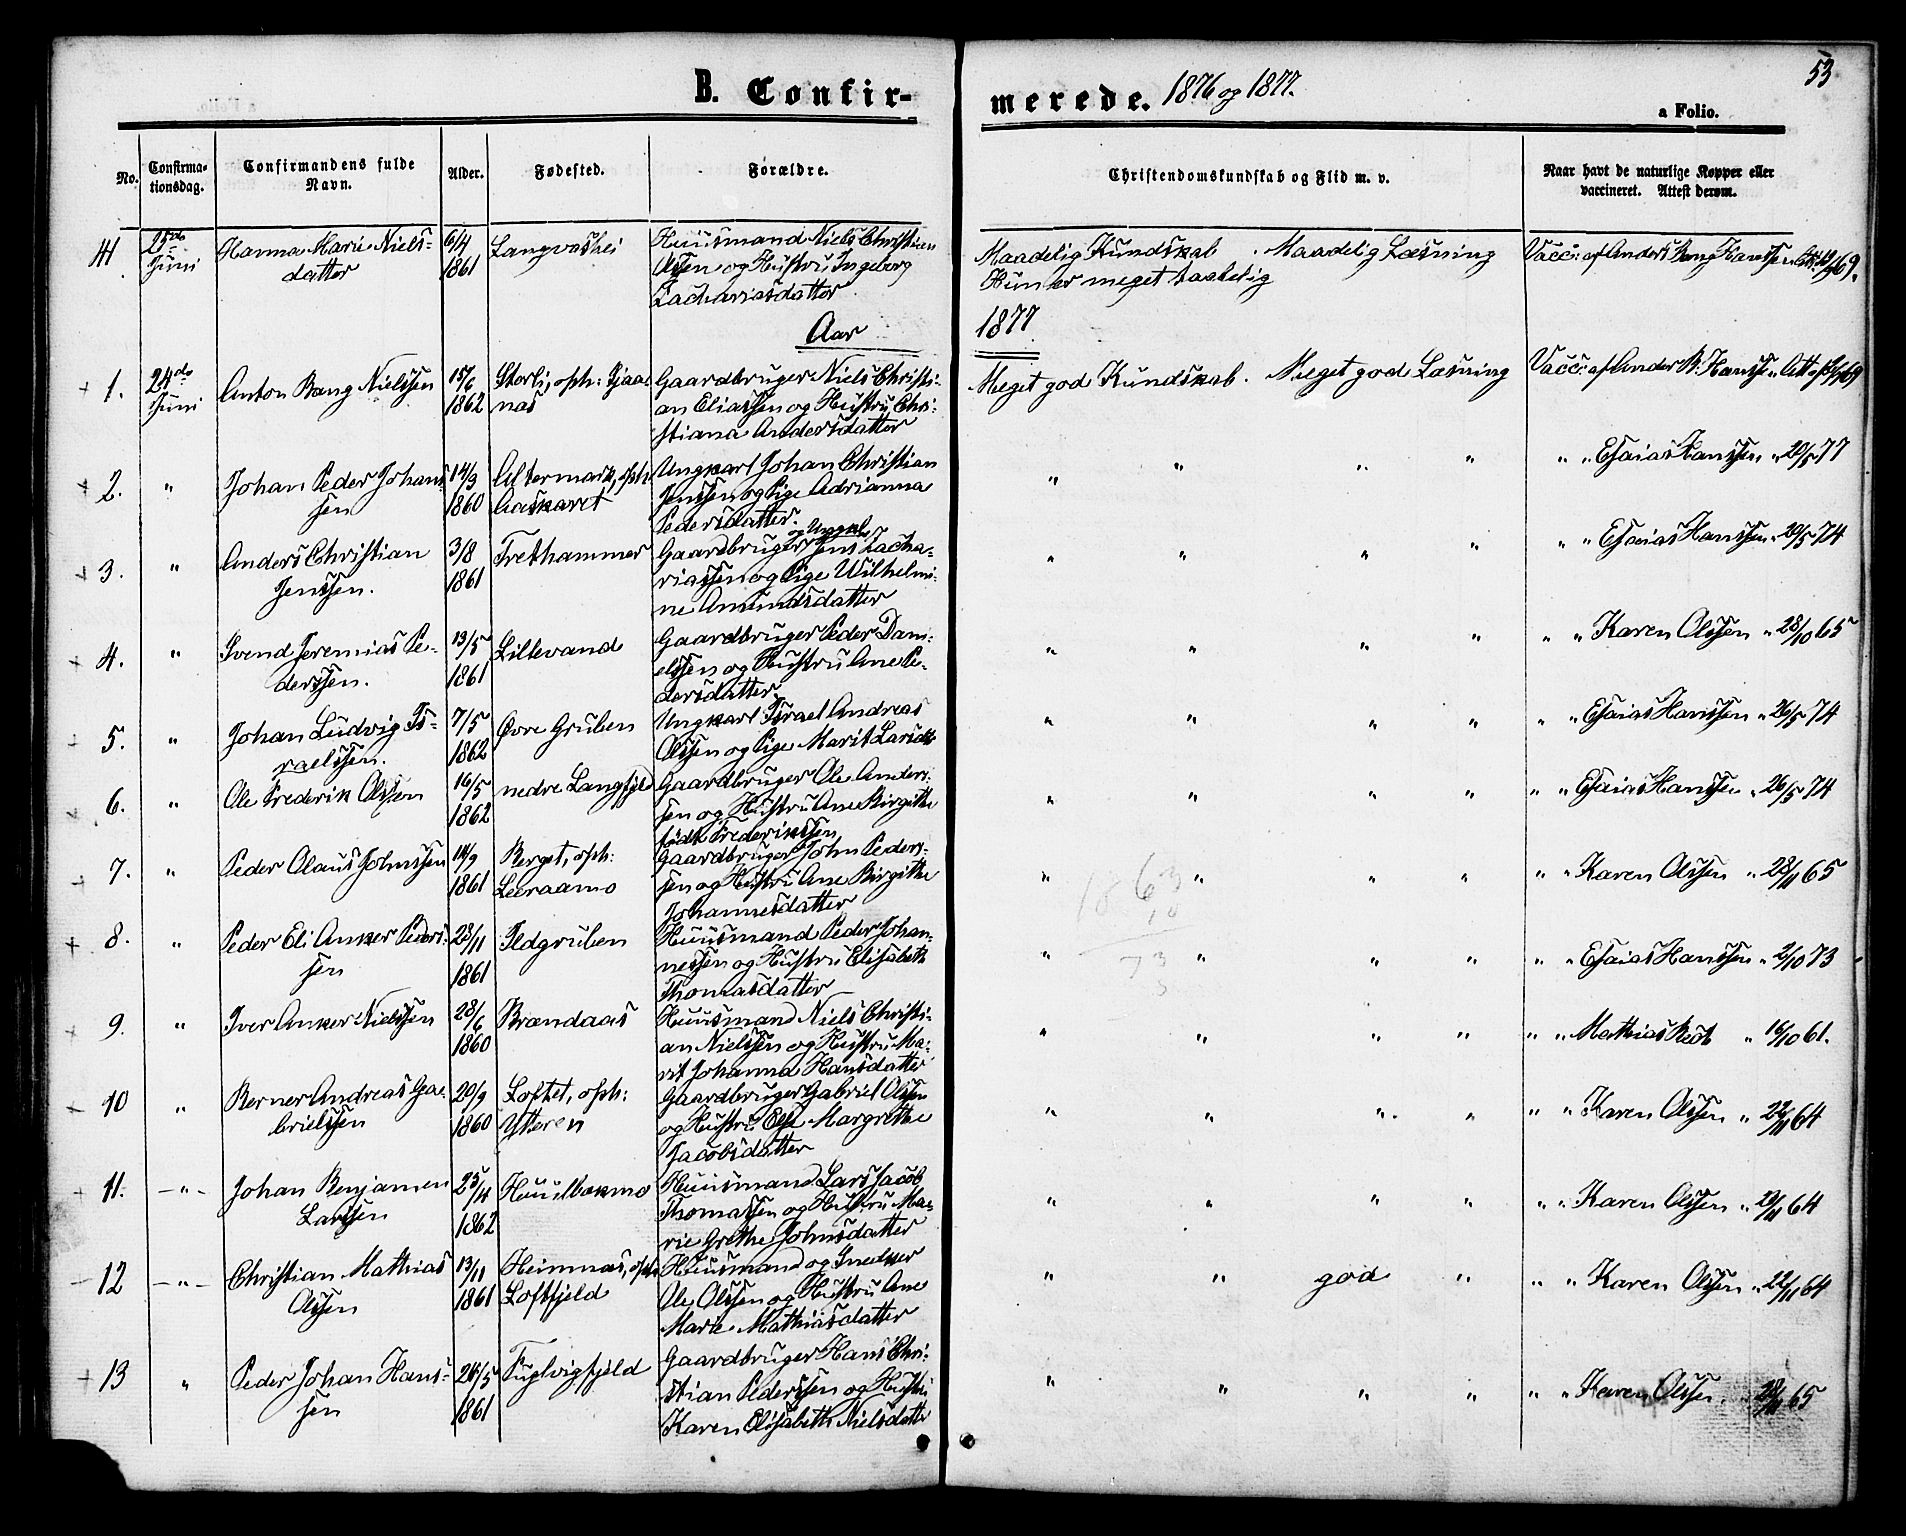 53
B. Confirmerede. 1876 og 1877.
a Folio.
No. Confirmationsdag. Confirmandens fulde Navn. Alder. Fødested. Forældre. Christendomskundskab og Flid m. v. Naar havt de naturlige Kopper eller vaccineret. Attest derom.
41. 25de Juni Hanna Marie Nielsdatter 6/4 1861 Langvashei Huusmand Niels Christian Olssen og Hustru Ingeborg Zachariasdatter Maadelig Kundskab. Maadelig Læsning Hun er meget taabelig Vacc: af Anders Bang Hanssen
Aar 1877
+ 1. 24de Juni Anton Bang Nielssen 15/6 1862 Storli, oph: Gjaanas Gaardbruger Niels Christian Eliassen og Hustru Christiana Andersdatter Meget god Kundskab. Meget god Læsning Vacc: af Ander B. Hanssen
+ 2. " Johan Peder Johanssen 14/9 1860 Altermark, oph: Aaskaret Ungkarl Johan Christian Jenssen og Pige Adrianna Pedersdatter. " " " " " " Esaias Hanssen " 20/5 77
+ 3. " Anders Christian Jenssen. 3/8 1861 Trethammer Gaardbruger og Ungkarl Jens Zachariassen og Pige Wilhelmine Amundsdatter " " " " " " Esaias Hanssen " 20/5 74
+ 4. " Svend Jeremias Pederssen. 13/5 1861 Lillevand Gaardbruger Peder Danielssen og Hustru Ane Pedersdatter. " " " " " " Karen Olssen " 28/10 65
+ 5. " Johan Ludvig Israelssen. 7/5 1862 Øvre Gruben Ungkarl Israel Andreas Olssen og Pige Marit Larsdtr " " " " " " Esaias Hanssen " 26/5 74
+ 6. " Ole Frederik Olssen 16/5 1862 nedre Langfjeld Gaardbruger Ole Anderssen og Hustru Ane Birgitha født Frederikssen " " " " " " Esaias Hanssen " 26/5 74
+ 7. " Peder Olaus Johnssen 14/9 1861 Berget, oph: Leeraamo Gaardbruger John Pederssen og Hustru Ane Birgithe Johannesdatter " " " " " " Karen Olssen " 28/11 65
1863
14
73
5
+ 8. " Peder Eli Anker Pederssen 28/11 1861 Ildgruben Huusmand Peder Johannessen og Hustru Elisabeth Thomasdatter " " " " " " Esaias Hanssen " 2/10 73
+ 9. " Iver Anker Nielssen 28/6 1860 Brændaas Huusmand Niels Christian Nielssen og Hustru Marit Johanna Hansdatter " " " " " " Mathias Redt " 16/10 61.
+ 10 " Berner Andreas Gabrielssen 20/9 1860 Loftet, oph: Ytteren Gaardbruger Gabriel Olssen og Hustru Else Margrethe Jacobsdatter " " " " " " Karen Olssen " 22/11 64
+ 11. " Johan Benjamen Larssen 25/4 1862 Huusmand Lars Jacob Thomassen og Hustru Marie Grethe Johnsdatter " " " " " " Karen Olssen " 22/11 64
- 12 " Christian Mathias Olssen 13/11 1861 Heimnæs, oph: Loftfjeld Huusmand og Snedker Ole Olssen og Hustru Ane Marie Mathiasdatter " " god " " " Karen Olssen " 22/11 64
+ 13 " Peder Johan Hanssen 26/5 1861 Fuglvigfjeld Gaardbruger Hans Christian Pederssen og Hustru Karen Elisabeth Nielsdatter " " " " " " Karen Olssen " 28/11 65